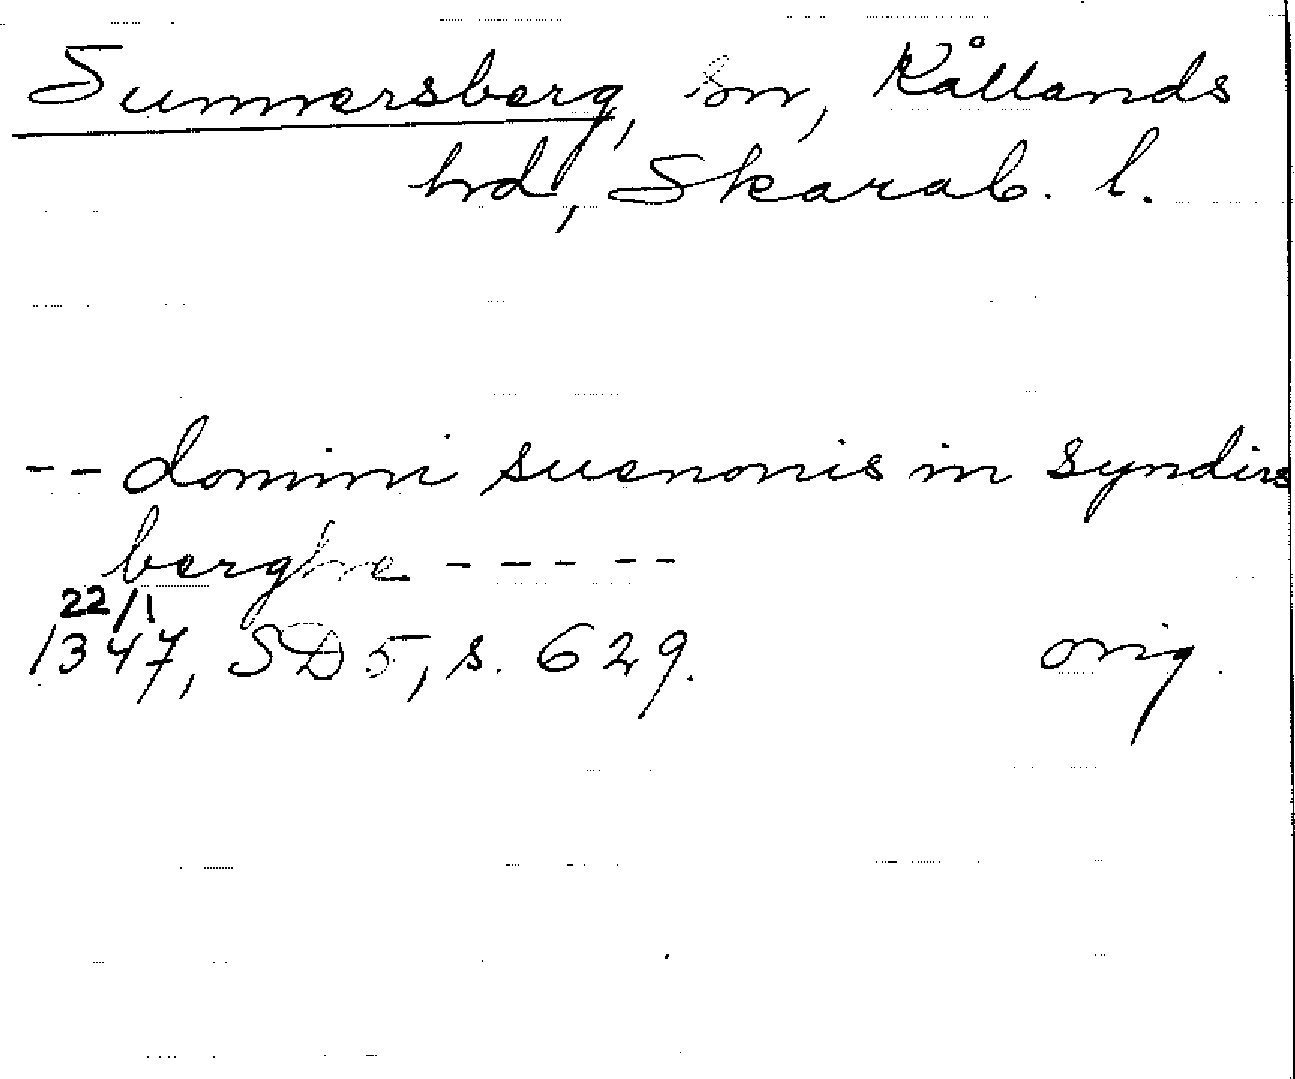 Sunnersberg, sn, Kållands
hd, Skarab. l.
-- domini suenonis in syndirs
berghe -----
22/1
1347, SD 5, s. 629. orig.